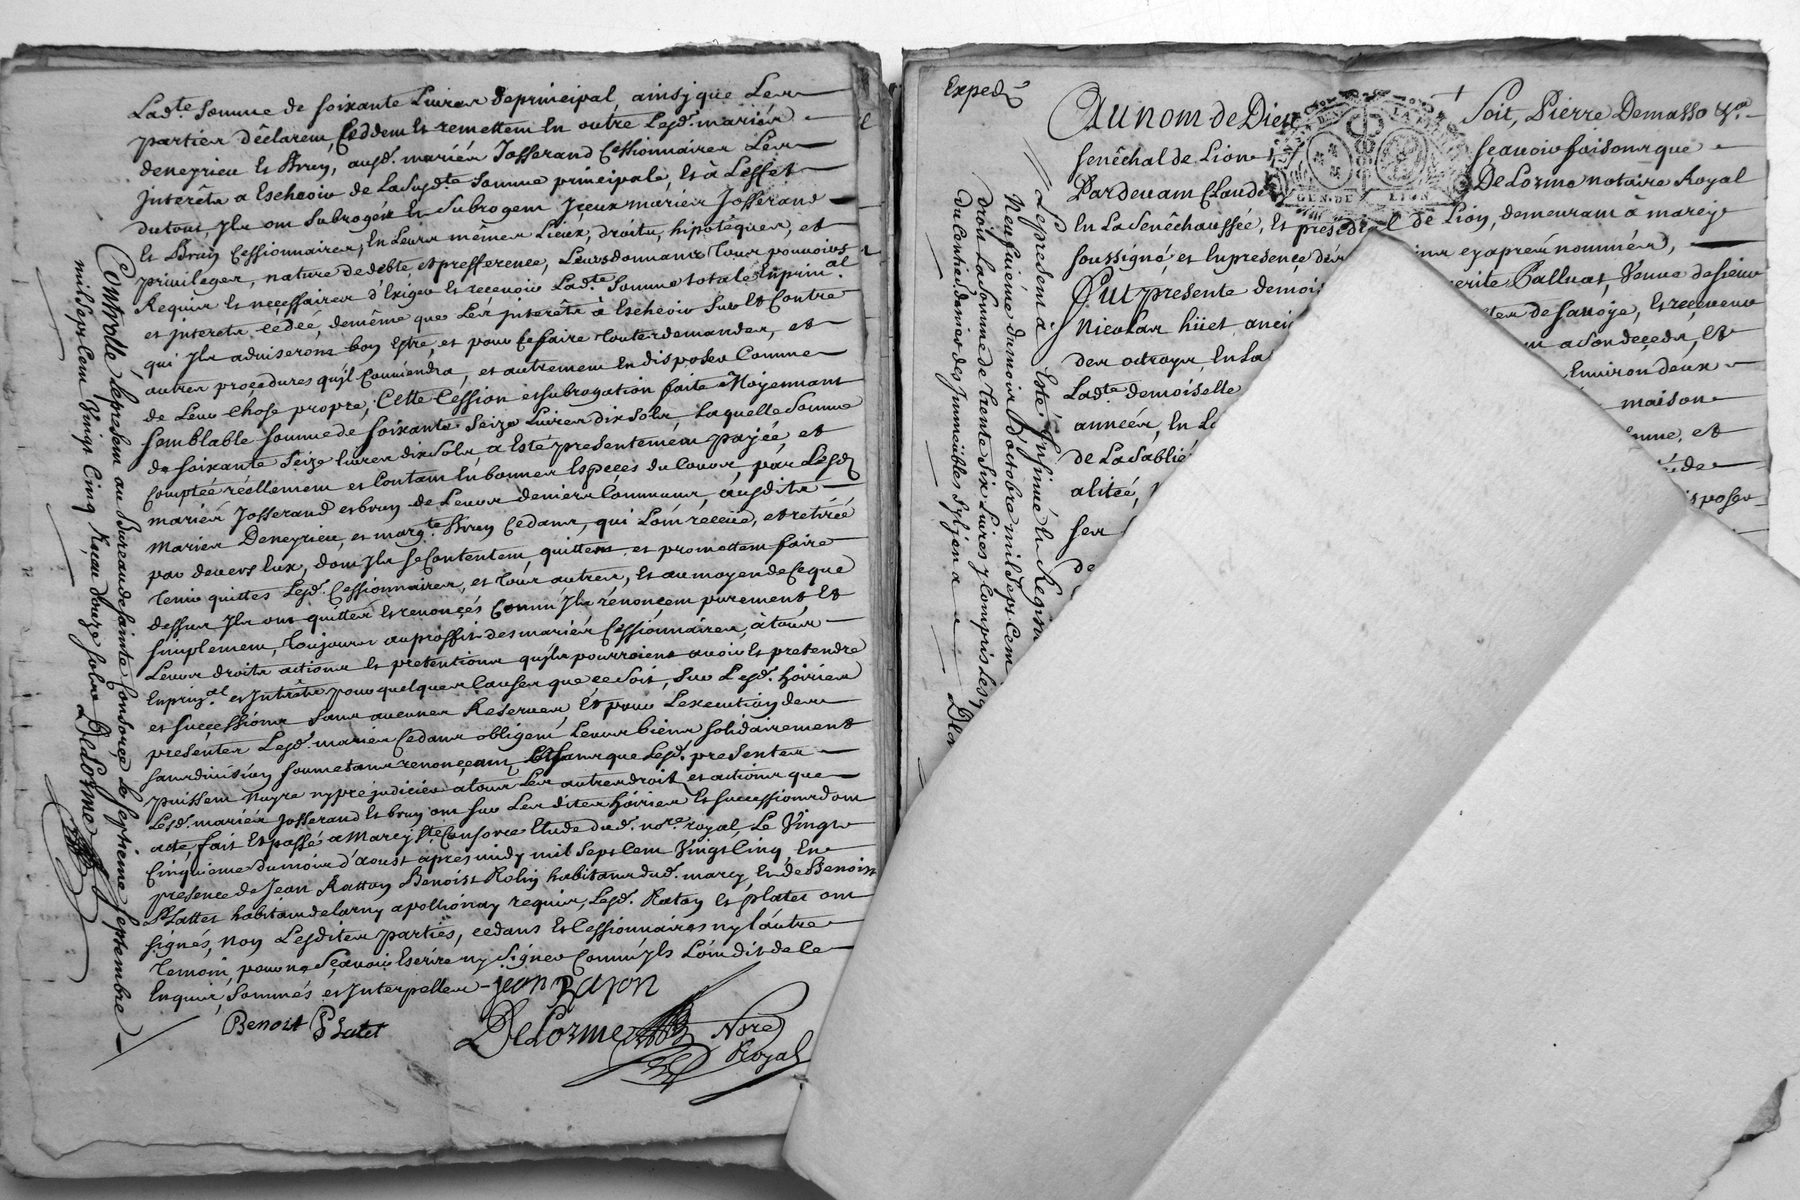 Lad.te somme de soixante Livres de principal, ainsi que Les
parties déclarent, Ceddent et remettent en outre Lesd. mariés
deneyrieu et Bruy, ausd. mariés Josserand Cessionnaires Les
Interêts a Escheoir de La susd.te somme principale, et à L'effet
du tout, Ils ont subrogés et subrogent Iceux mariés Josserand
et Bruy Cessionnaires, en Leurs mêmes Lieux, droits, hipotèques, et
privileges, nature de debte, et presference, Leurs donnants tous pouvoirs
Requis et necessaires d'Exiger et recevoir Lad.te somme totale En prin.al
et interets cédée, demême que Les interêts à Escheoir sur Et Contre
qui Ils aduiseront bon Estre, et pour ce faire toutes demandes, et
autres procedures qu'il Conviendra, et autrement en disposer Comme
de Leur Chose propre, Cette Cession et subrogation faite Moyennant
semblable somme de soixante seize Livres dix sols, Laquelle somme
de soixante seize livres dix sols, a Esté presentement payée, et
comptée réellement et Contant en bonnes Espèces du Cours, par Lesd.
mariés Josserand et bruy de Leurs deniers Communs, ausdits
Mariés Deneyrieu, et marg.te Bruy Cedans, qui L'ont reçeüe, et retirée
par devers Eux, dont Ils se Contentent, quittent, et promettent faire
tenir quittes Lesd. Cessionnaires, et tous autres, et au moyen de Ce que
dessus Ils ont quittés et renonçés Comm'Ils rénonçent purement Et
simplement, toujours au proffit desmariés Cessionnaires, à tous
Leurs droits actions et pretentions qu'ils pourroient avoir et pretendre
En prin.al et Intérêts pour quelques Causes que ce soit, sur Lesd. hoiries
et successions sans aucunes Réserves, Et pour L'execution des
presentes Lesd. mariés Cedans obligent Leurs biens solidairement
sans division soumetans renonçeant, Et sans que Lesd. presentes
puissent Nuyre ny prejudicier a tous Les autres droits, et actions que
Lesd. mariés Josserand et bruy ont sur Les dites hoiries Et successions dont
acte, fait Et passé a Marcy S.te Consorce Etude dud. no.re royal, Le Vingt
Cinquieme du mois d'aoust après midy mil Sept Cent Vingt Cinq, En
presence de Jean Ratton Benoist Rolin habitans dud. marcy, Et de Benoist
P. Lattet habitant de Larny apollionay requis, Lesd. Raton et platet ont
signés, Non Lesdites parties, cedans Et Cessionnaires ny l'autre
temoin, pour ne Sçavoir Escrire ny Signer Comm'yls L'ont dit de Ce
Enquis, Sommés et Interpellés
jean Raton
Benoist Platet
DeLorme No.re
Royal
Controlle le present au Bureau de Sainte Consorce Le Septieme Septembre
mil Sept Cent Vingt Cinq Reçu douze sols
DeLorme
Exped.
Au nom de Dieu Soit, Pierre Demasso &.a
senêchal de Lion sçavoir faisons que
Pardevant Claude DeLorme notaire Royal
En La Senêchaussée, Et présidial de Lion, demeurant à marcy
soussigné, et En presence des
cy après nommés,
Fut presente demois
Palluat, Veuve de sieur
Nicolas hüet, anci
de savoye, et receveur
des octroys, En La
a son deçeds, Et
Lad.te demoiselle
Environ deux
années, En La
maison
de La Sablie
et
alitée,
de
ses
disposer
de
Le present a Esté Insinué le Regis
Neufuième du mois d'octobre mil Sept Cent
droit La Somme de Trente Six Livres y Compris Les
du Centie. denier des Immeubles